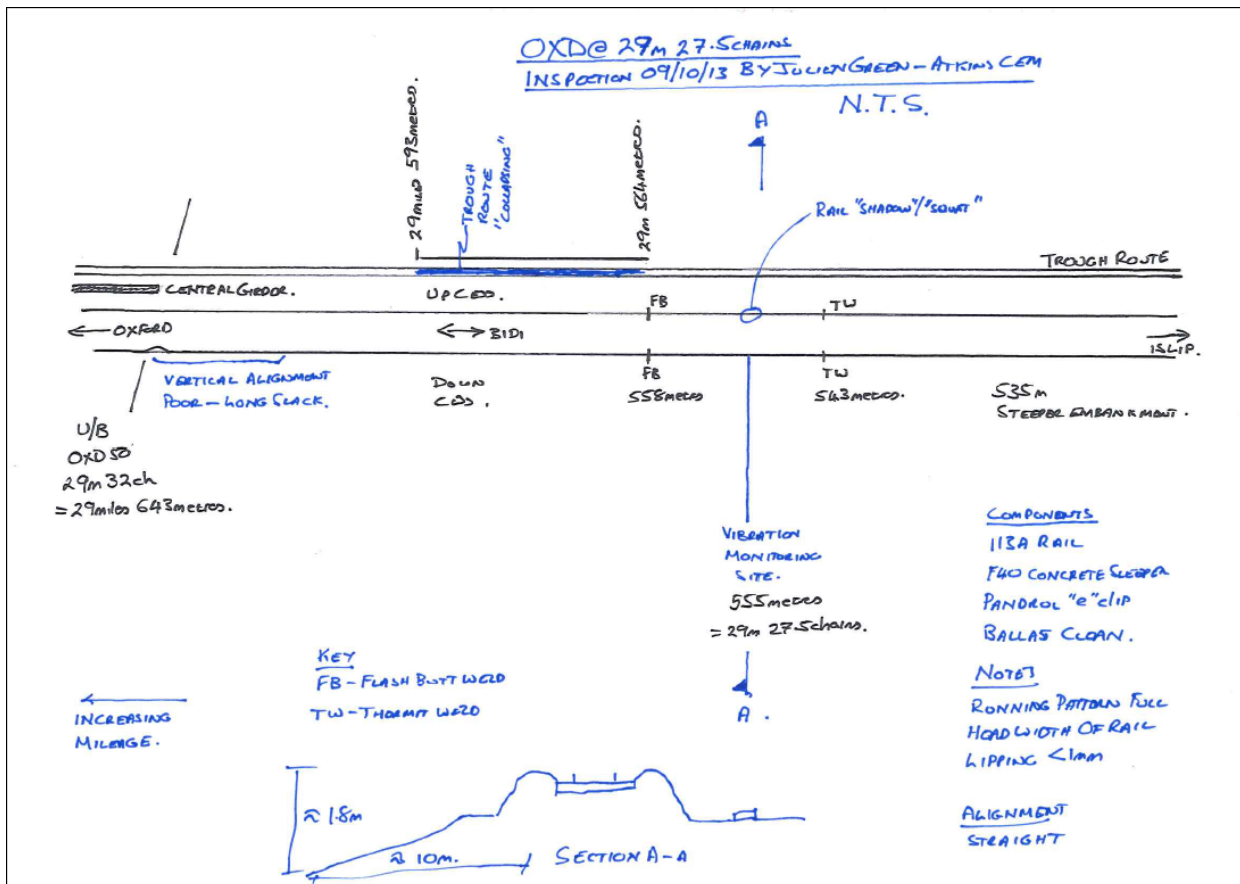 OXD@ 29m 27.5CHAINS
INSPECTION 09/10/13 BY JULIEN GREEN-ATKINS CEM
N.T.S.
A
29MILES 593METRES.
TROUGH
ROUTE
"COLLAPSING"
29m 564METRES.
RAIL "SHADOW"/"SQUAT"
TROUGH ROUTE
CENTRAL GIRDER.
UP CESS.
FB
TW
OXFORD
BIDI
ISLIP.
VERTICAL ALIGNMENT
POOR-LONG SLACK.
DOWN
CESS.
FB
558METRES
TW
543METRES.
535m
STEEPER EMBANKMENT.
U/B
OXD 50
29m 32ch
=29miles 643metres.
VIBRATION
MONITORING
SITE.
555metres
=29m 27.5chains.
A.
COMPONENTS
113A RAIL
F40 CONCRETE SLEEPER
PANDROL "e" clip
BALLAST CLEAN.
KEY
FB-FLASH BUTT WELD
TW-THERMIT WELD
NOTES
RUNNING PATTERN FULL
HEAD WIDTH OF RAIL
LIPPING <1mm
INCREASING
MILEAGE.
≈1.8m
≈10m.
SECTION A-A
ALIGNMENT
STRAIGHT